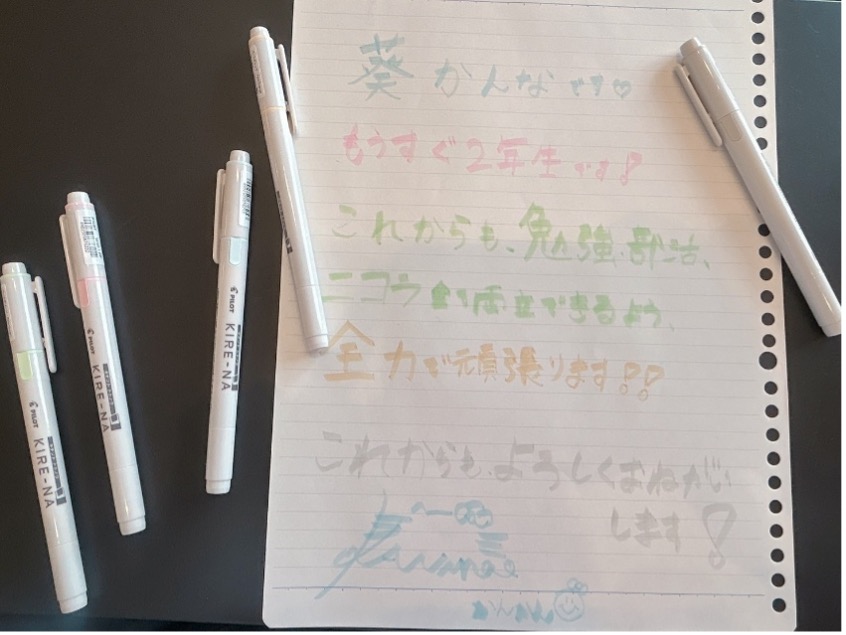 葵かんなです♡
もうすぐ2年生です!
これからも、勉強、部活、
ニコラ全て両立できるよう、
全力で頑張ります!!
これからもよろしくおねがい
します!
かんかん
PILOT
KIRE-NA
PILOT
KIRE-NA
PILOT
KIRE-NA